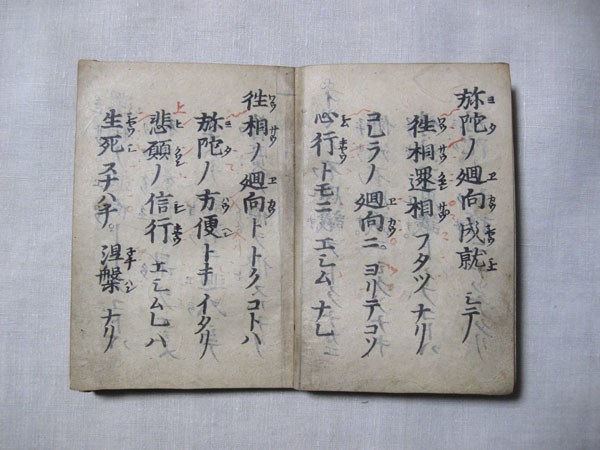 弥陀ノ廻向成就シテ
徃相還相フタツナリ
コレラノ廻向ニヨリテコソ
心行トモニエシムナレ
徃相ノ廻向トトクコトハ
弥陀ノ方便トキイタリ
悲願ノ信行エシムレハ
生死スナハチ涅槃ナリ